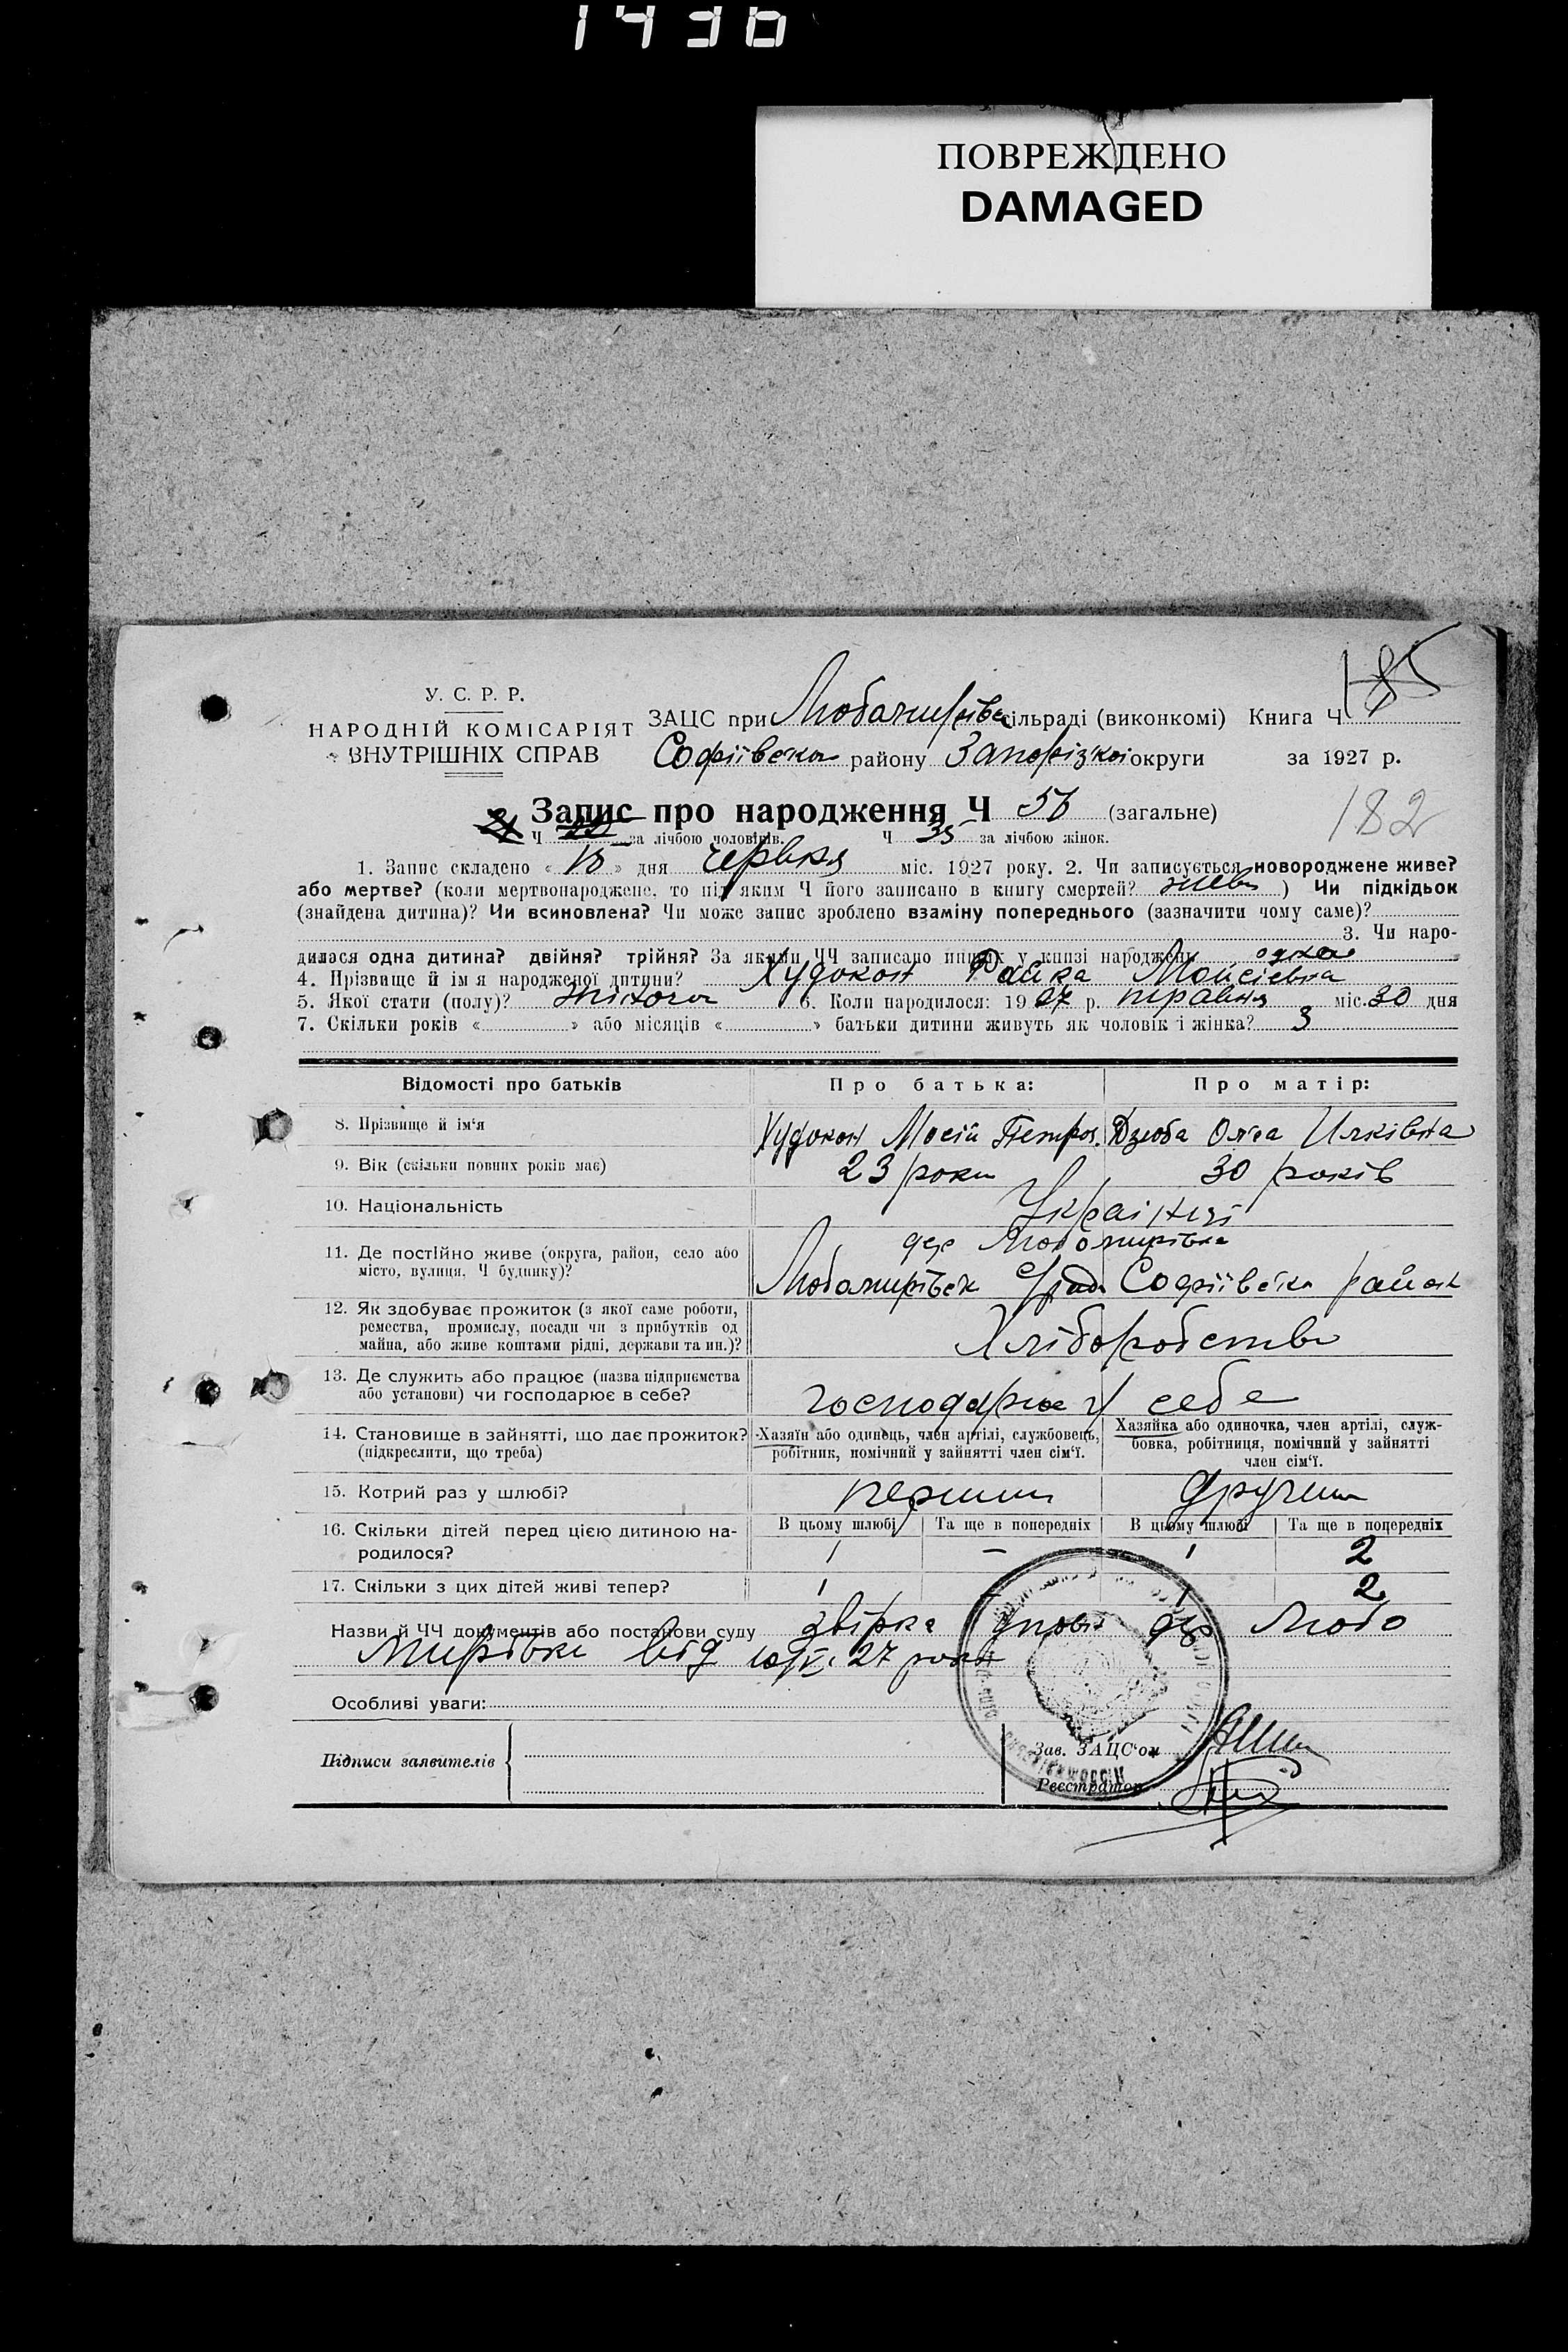 1436
ПОВРЕЖДЕНО
DAMAGED
185
У. С. Р. Р.
НАРОДНІЙ КОМІСАРІЯТ
ВНУТРІШНІХ СПРАВ
ЗАЦС при Любомирівс сільраді (виконкомі) Книга Ч
Софіївськ району Запорізкоі округи за 1927 р.
Запис про народження Ч 56 (загальне)
182
Ч 22 за лічбою чоловіків. Ч 35 за лічбою жінок.
1. Запис складено « 15 » дня червня міс. 1927 року. 2. Чи записується новороджене живе?
або мертве? (коли мертвонароджене, то під яким Ч його записано в книгу смертей? живе ) Чи підкідьок
(знайдена дитина)? Чи всиновлена? Чи може запис зроблено взаміну попереднього (зазначити чому саме)?
3. Чи наро-
дилася одна дитина? двійня? трійня? За якими ЧЧ записано инших у книзі народжень одна
4. Прізвище й ім'я народженої дитини? Худокон Райка Мойсієвна
5. Якої стати (полу)? жіноча 6. Коли народилося: 19 27 р. травня міс. 30 дня
7. Скільки років « » або місяців « » батьки дитини живуть як чоловік і жінка? 3
Відомості про батьків Про батька: Про матір:
8. Прізвище й ім'я Худокон Мосій Петров. Дзюба Ольга Илківна
9. Вік (скільки повних років має) 23 роки 30 років
10. Національність Українці
11. Де постійно живе (округа, район, село або
місто, вулиця, Ч будинку)?
дер Любомирівка
Любомирівск С/рада Софіївська район
12. Як здобуває прожиток (з якої саме роботи,
ремества, промислу, посади чи з прибутків од
майна, або живе коштами рідні, держави та ин.)?
Хліборобство
13. Де служить або працює (назва підприємства
або установи) чи господарює в себе?
господарює у себе
14. Становище в зайнятті, що дає прожиток?
(підкреслити, що треба)
Хазяїн або одинець, член артілі, службовець,
робітник, помічний у зайнятті член сім'ї.
Хазяйка або одиночка, член артілі, служ-
бовка, робітниця, помічний у зайнятті
член сім'ї.
15. Котрий раз у шлюбі? перший другий
16. Скільки дітей перед цією дитиною на-
родилося?
В цьому шлюбі Та ще в попередніх В цьому шлюбі Та ще в попередніх
1 – 1 2
17. Скільки з цих дітей живі тепер? 1 – 1 2
Назви й ЧЧ документів або постанови суду звірка дер Любо
мирівки від 27 року
Особливі уваги:
Підписи заявителів
Зав. ЗАЦС'ом
Реєстратор